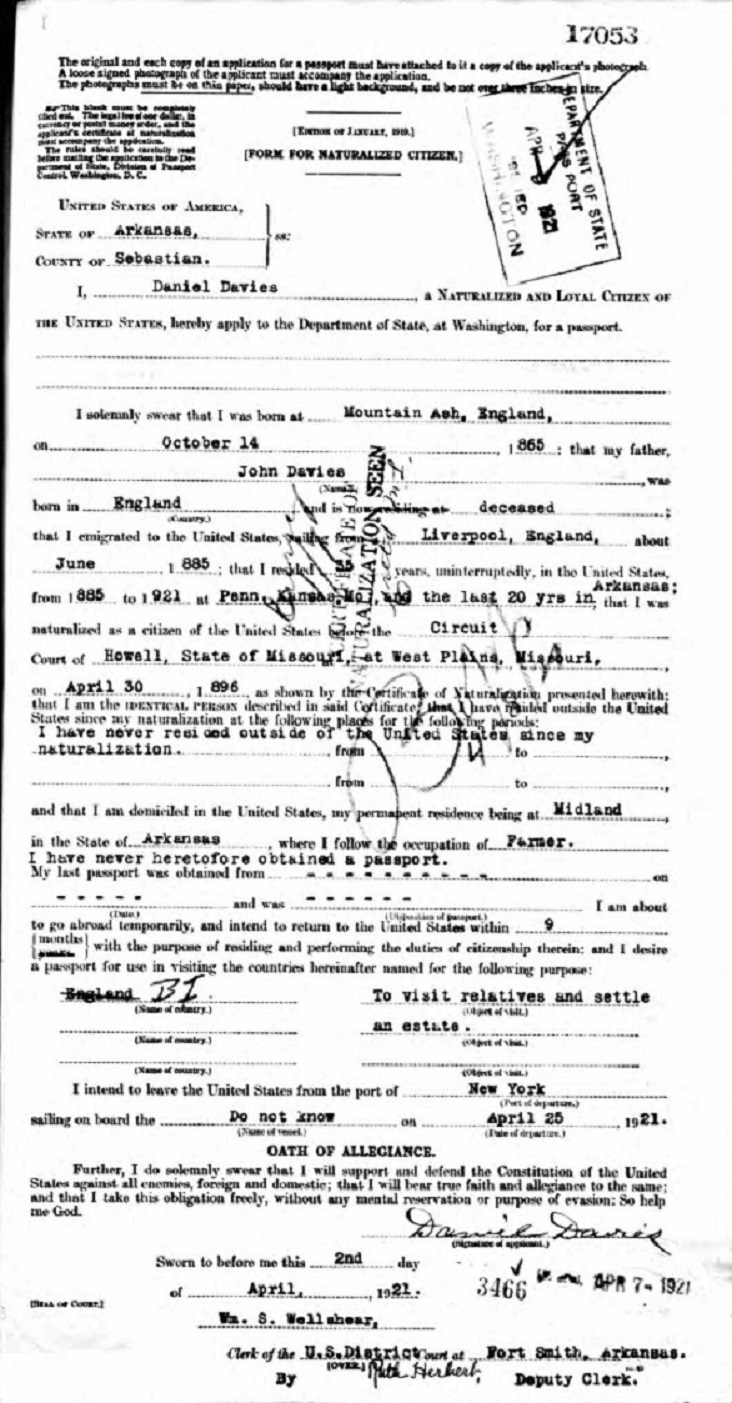 17053
The original and each copy of an application for a passport must have attached to it a copy of the applicant's photograph.
A loose signed photograph of the applicant must accompany the application.
The photographs must be on thin paper, should have a light background, and be not over three inches in size.
This blank must be completely
filled out. The legal fee of one dollar, in
currency or postal money order, and the
applicant's certificate of naturalization
must accompany the application.
The rules should be carefully read
before mailing the application to the De-
partment of State, Division of Passport
Control, Washington, D. C.
[EDITION OF JANUARY, 1919.]
[FORM FOR NATURALIZED CITIZEN.]
DEPARTMENT OF STATE
PASSPORT
APR 1921
WASHINGTON
UNITED STATES OF AMERICA,
STATE OF Arkansas, } ss:
COUNTY OF Sebastian.
I, Daniel Davies, a NATURALIZED AND LOYAL CITIZEN OF
THE UNITED STATES, hereby apply to the Department of State, at Washington, for a passport.
I solemnly swear that I was born at Mountain Ash, England,
on October 14, 1865; that my father,
John Davies, was
(Name.)
born in England and is now residing at deceased;
(Country.)
that I emigrated to the United States, sailing from Liverpool, England, about
June 1885; that I resided years, uninterruptedly, in the United States,
Arkansas;
from 1885 to 1921 at Penn, Kansas, Mo, and the last 20 yrs in, that I was
naturalized as a citizen of the United States before the Circuit
Court of Howell, State of Missouri, at West Plains, Missouri,
on April 30, 1896, as shown by the Certificate of Naturalization presented herewith;
that I am the IDENTICAL PERSON described in said Certificate; that I have resided outside the United
States since my naturalization at the following places for the following periods:
I have never resided outside of the United States since my
naturalization., from to ,
, from to ,
CERTIFICATE OF
NATURALIZATION SEEN
and that I am domiciled in the United States, my permanent residence being at Midland,
in the State of Arkansas, where I follow the occupation of Farmer.
I have never heretofore obtained a passport.
My last passport was obtained from - - - - - - - - - on
- - - - - and was - - - - - - I am about
(Date.) (Disposition of passport.)
to go abroad temporarily, and intend to return to the United States within 9
{months years} with the purpose of residing and performing the duties of citizenship therein; and I desire
a passport for use in visiting the countries hereinafter named for the following purpose:
England BI. To visit relatives and settle
(Name of country.) (Object of visit.)
an estate.
(Name of country.) (Object of visit.)
(Name of country.) (Object of visit.)
I intend to leave the United States from the port of New York
(Port of departure.)
sailing on board the Do not know on April 25, 1921.
(Name of vessel.) (Date of departure.)
OATH OF ALLEGIANCE.
Further, I do solemnly swear that I will support and defend the Constitution of the United
States against all enemies, foreign and domestic; that I will bear true faith and allegiance to the same;
and that I take this obligation freely, without any mental reservation or purpose of evasion: So help
me God.
Daniel Davies
(Signature of applicant.)
Sworn to before me this 2nd day
of April, 1921.
3466 APR 7- 1921
[SEAL OF COURT.]
Wm. S. Wellshear,
Clerk of the U.S.District Court at Fort Smith, Arkansas.
[OVER.]
By Ruth Herbert, Deputy Clerk.